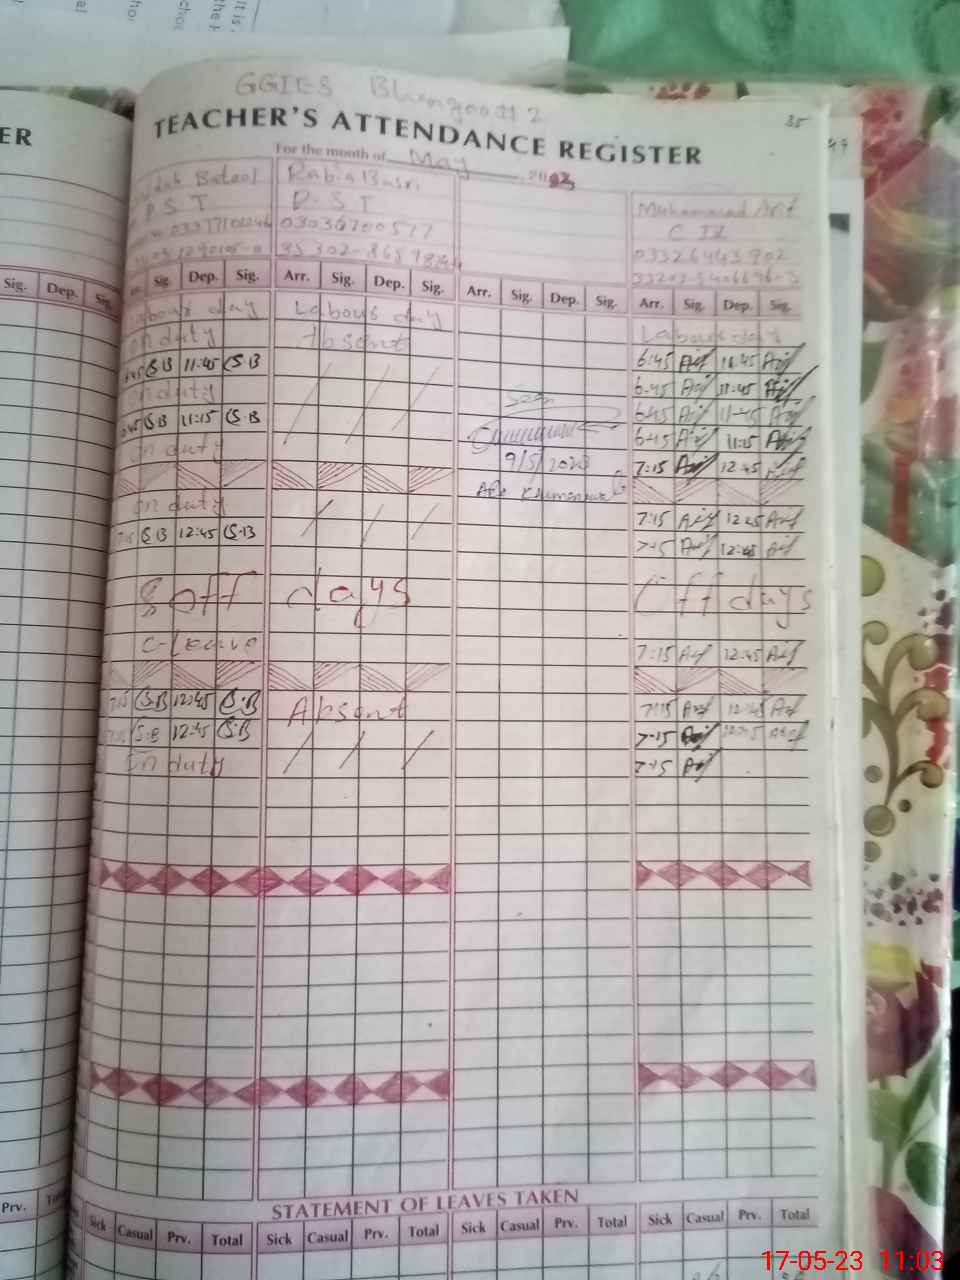 GGIES
TEACHER'S ATTENDANCE REGISTER
35
ER
For the month of May
Rabia Basri
P.S.T
Muhammad Arif
C IV
03036700577
03326443902
Sig. Dep. Sig.
Sig. Dep. Sig. Arr. Sig. Dep. Sig. Arr. Sig. Dep. Sig. Arr. Sig. Dep. Sig.
Labour day Labour day Labour day
on duty Absent 6:45 Arif 11:45 Arif
S.B 11:45 S.B 6:45 Arif 11:45 Arif
on duty Seen 6:45 Arif 11:45 Arif
S.B 11:15 S.B 6:45 Arif 11:15 Arif
on duty 9/5/2023 7:15 Arif 12:45 Arif
on duty 7:15 Arif 12:45 Arif
7:15 S.B 12:45 S.B 7:15 Arif 12:45 Arif
off days off days
C-Leave 7:15 Arif 12:45 Arif
7:15 S.B 12:45 S.B Absent 7:15 Arif 12:45 Arif
S.B 12:45 S.B 7:15 Arif
on duty 7:15 Arif
STATEMENT OF LEAVES TAKEN
Prv.
Sick Casual Prv. Total Sick Casual Prv. Total Sick Casual Prv. Total Sick Casual Prv. Total
17-05-23 11:03